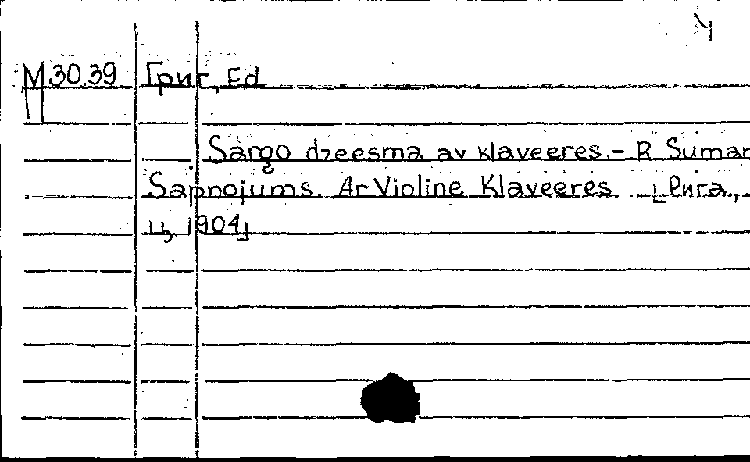 М 30.39 Григ, Ed
Sargo dzeesma av klaveeres. - R Suman
Sapnojums. Ar Violine Klaveeres [Рига,
ц, 1904]